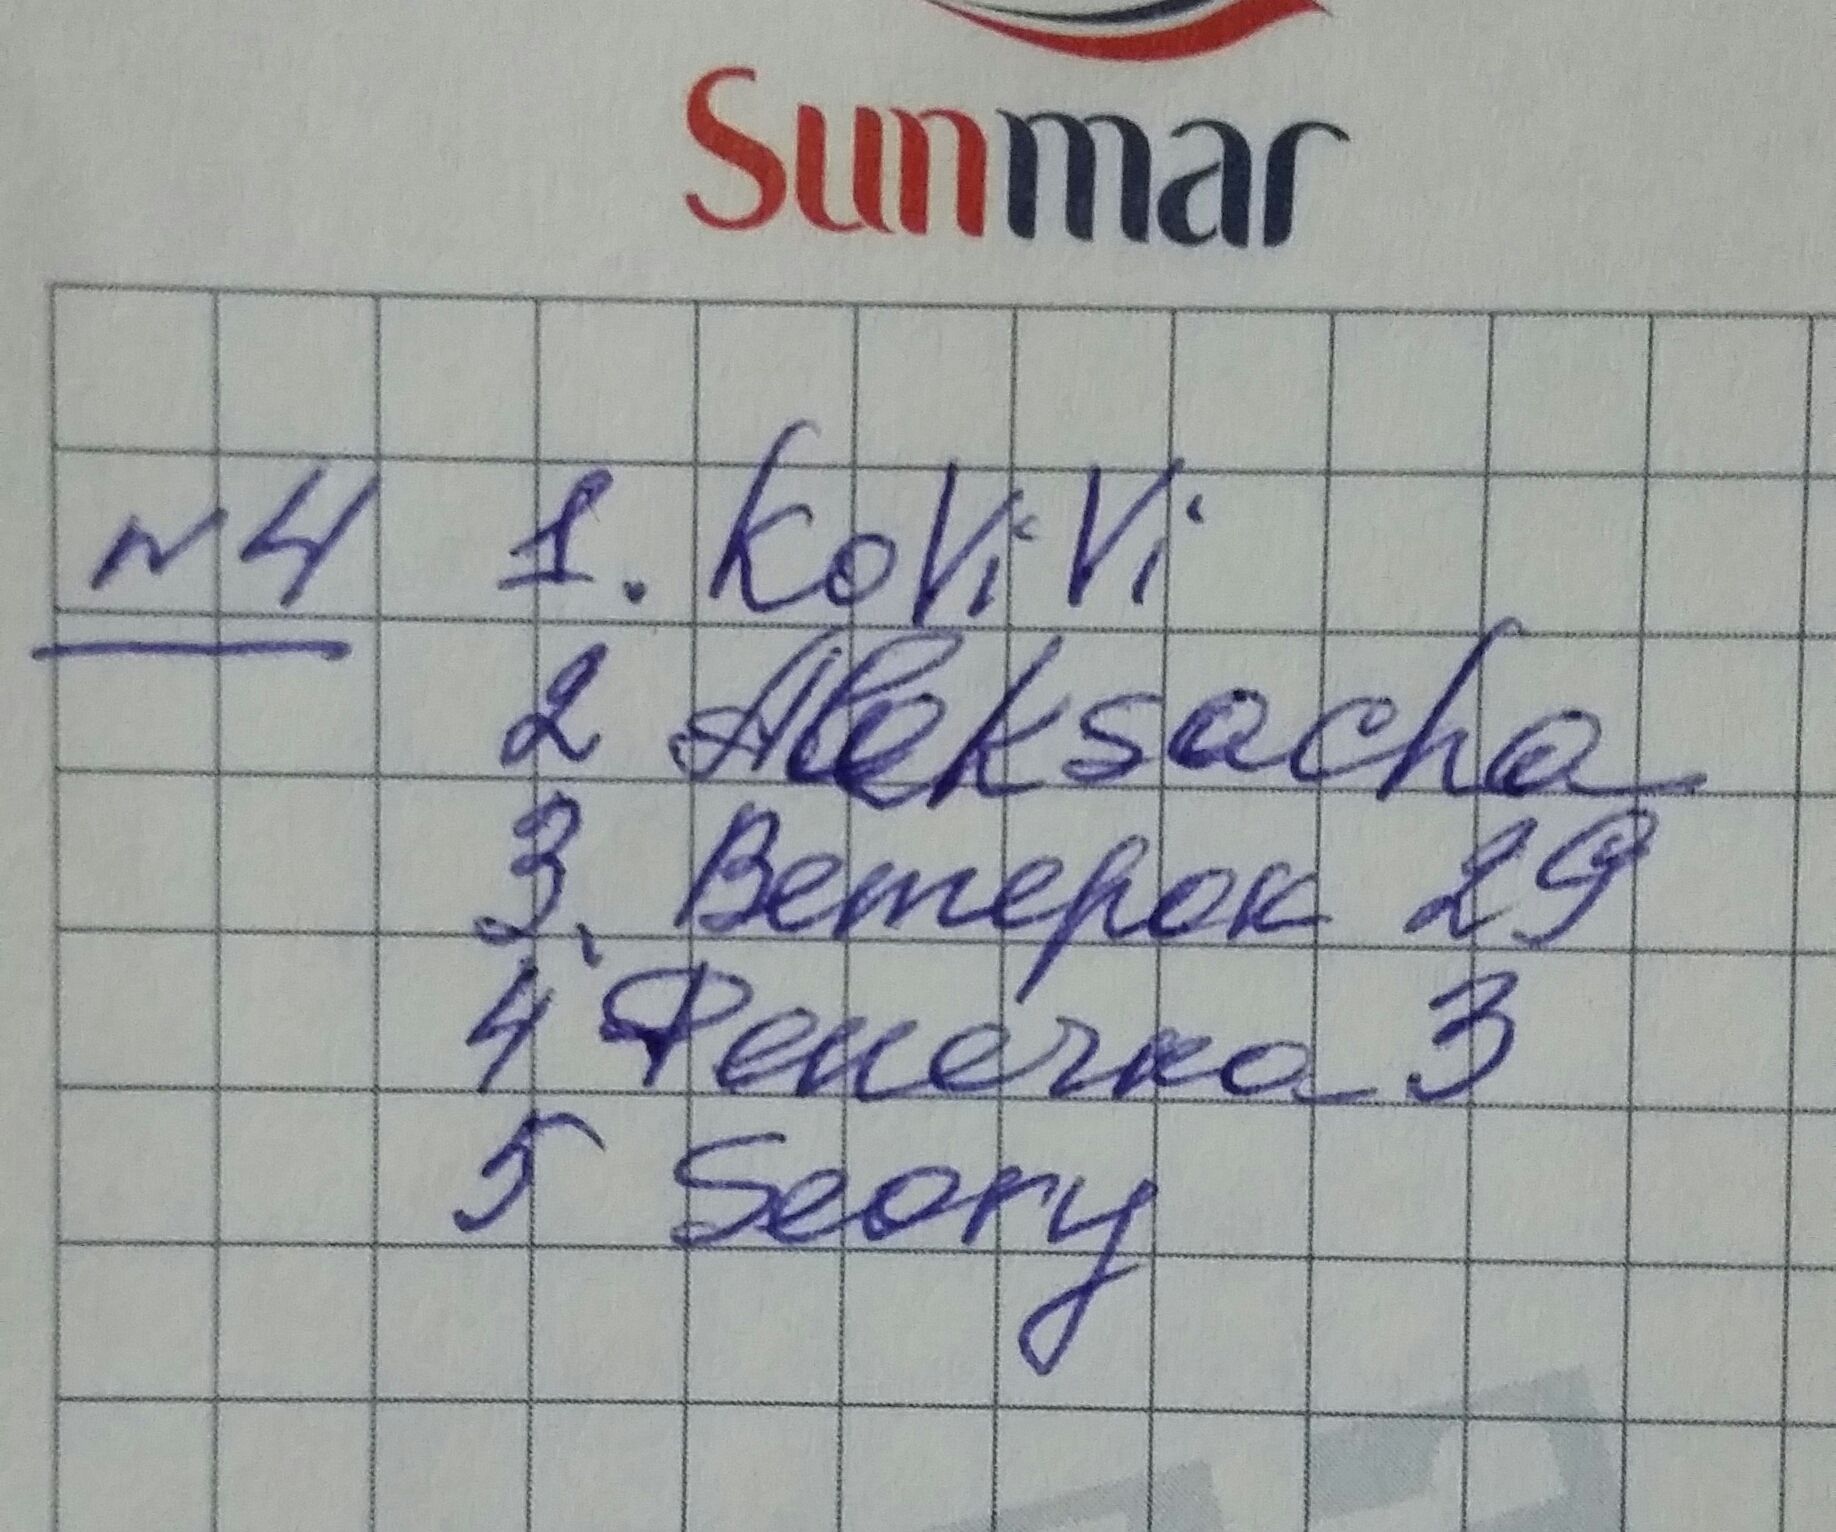 Sunmar
N4 1. KoViVi
2 Aleksacha
3. Ветерок 29
4 Фенечка 3
5 Seory